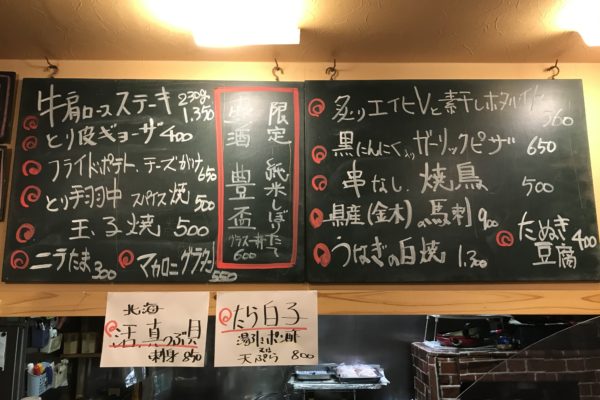 牛肩ロースステーキ 230g 1,350
とり皮ギョーザ 400
フライドポテト、チーズがけ 650
とり手羽中 スパイス焼 500
玉子焼 500
ニラたま 300
マカロニグラタン 550
限定 純米しぼりたて
酒 豊盃
グラス一杯 600
炙りエイヒレと素干しホタルイカ 560
黒にんにく入りガーリックピザ 650
串なし、焼鳥 500
県産(金木)の馬刺 900
うなぎの白焼 1,300
たぬき豆腐 400
北海
活真つぶ貝
刺身 850
たら白子
湯引きポン酢
又は
天ぷら 800